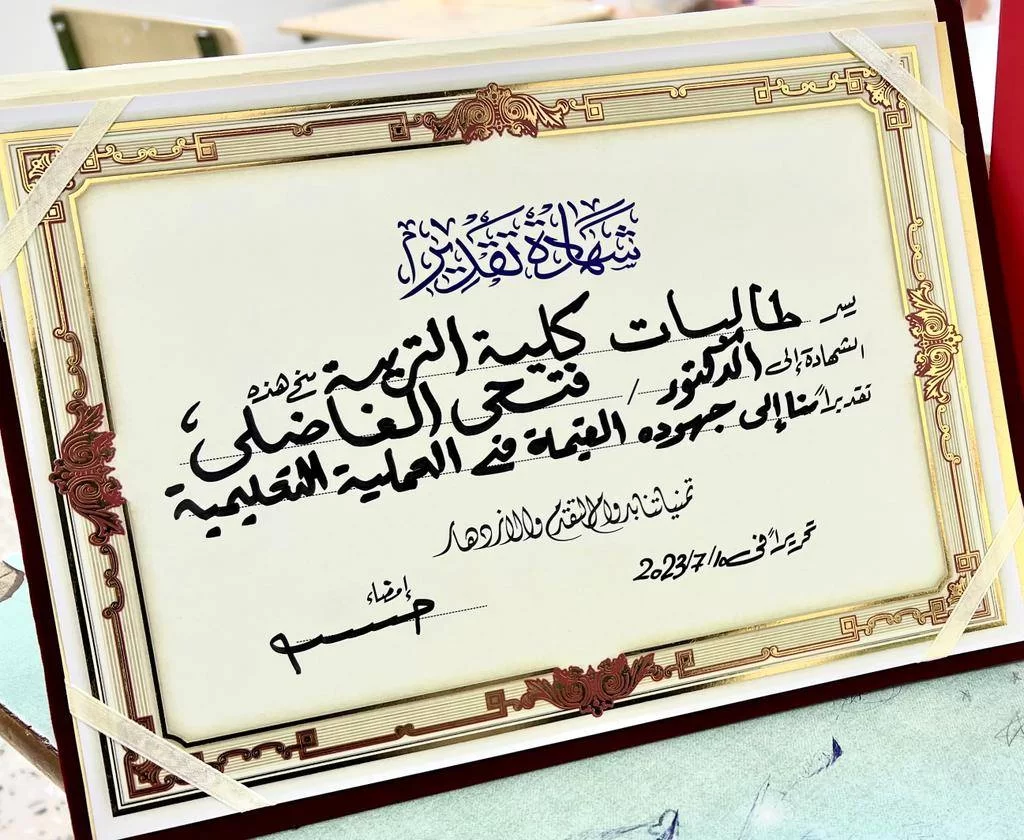 شهادة تقدير
يسر طالبات كلية التربية منح هذه
الشهادة إلى الدكتور / فتحى الفاضلى ،
تقديراً منا إلى جهوده القيمة في العملية التعليمية
تمنياتنا بدوام التقدم والازدهار
تحريراً في 2023/7/10
إمضاء